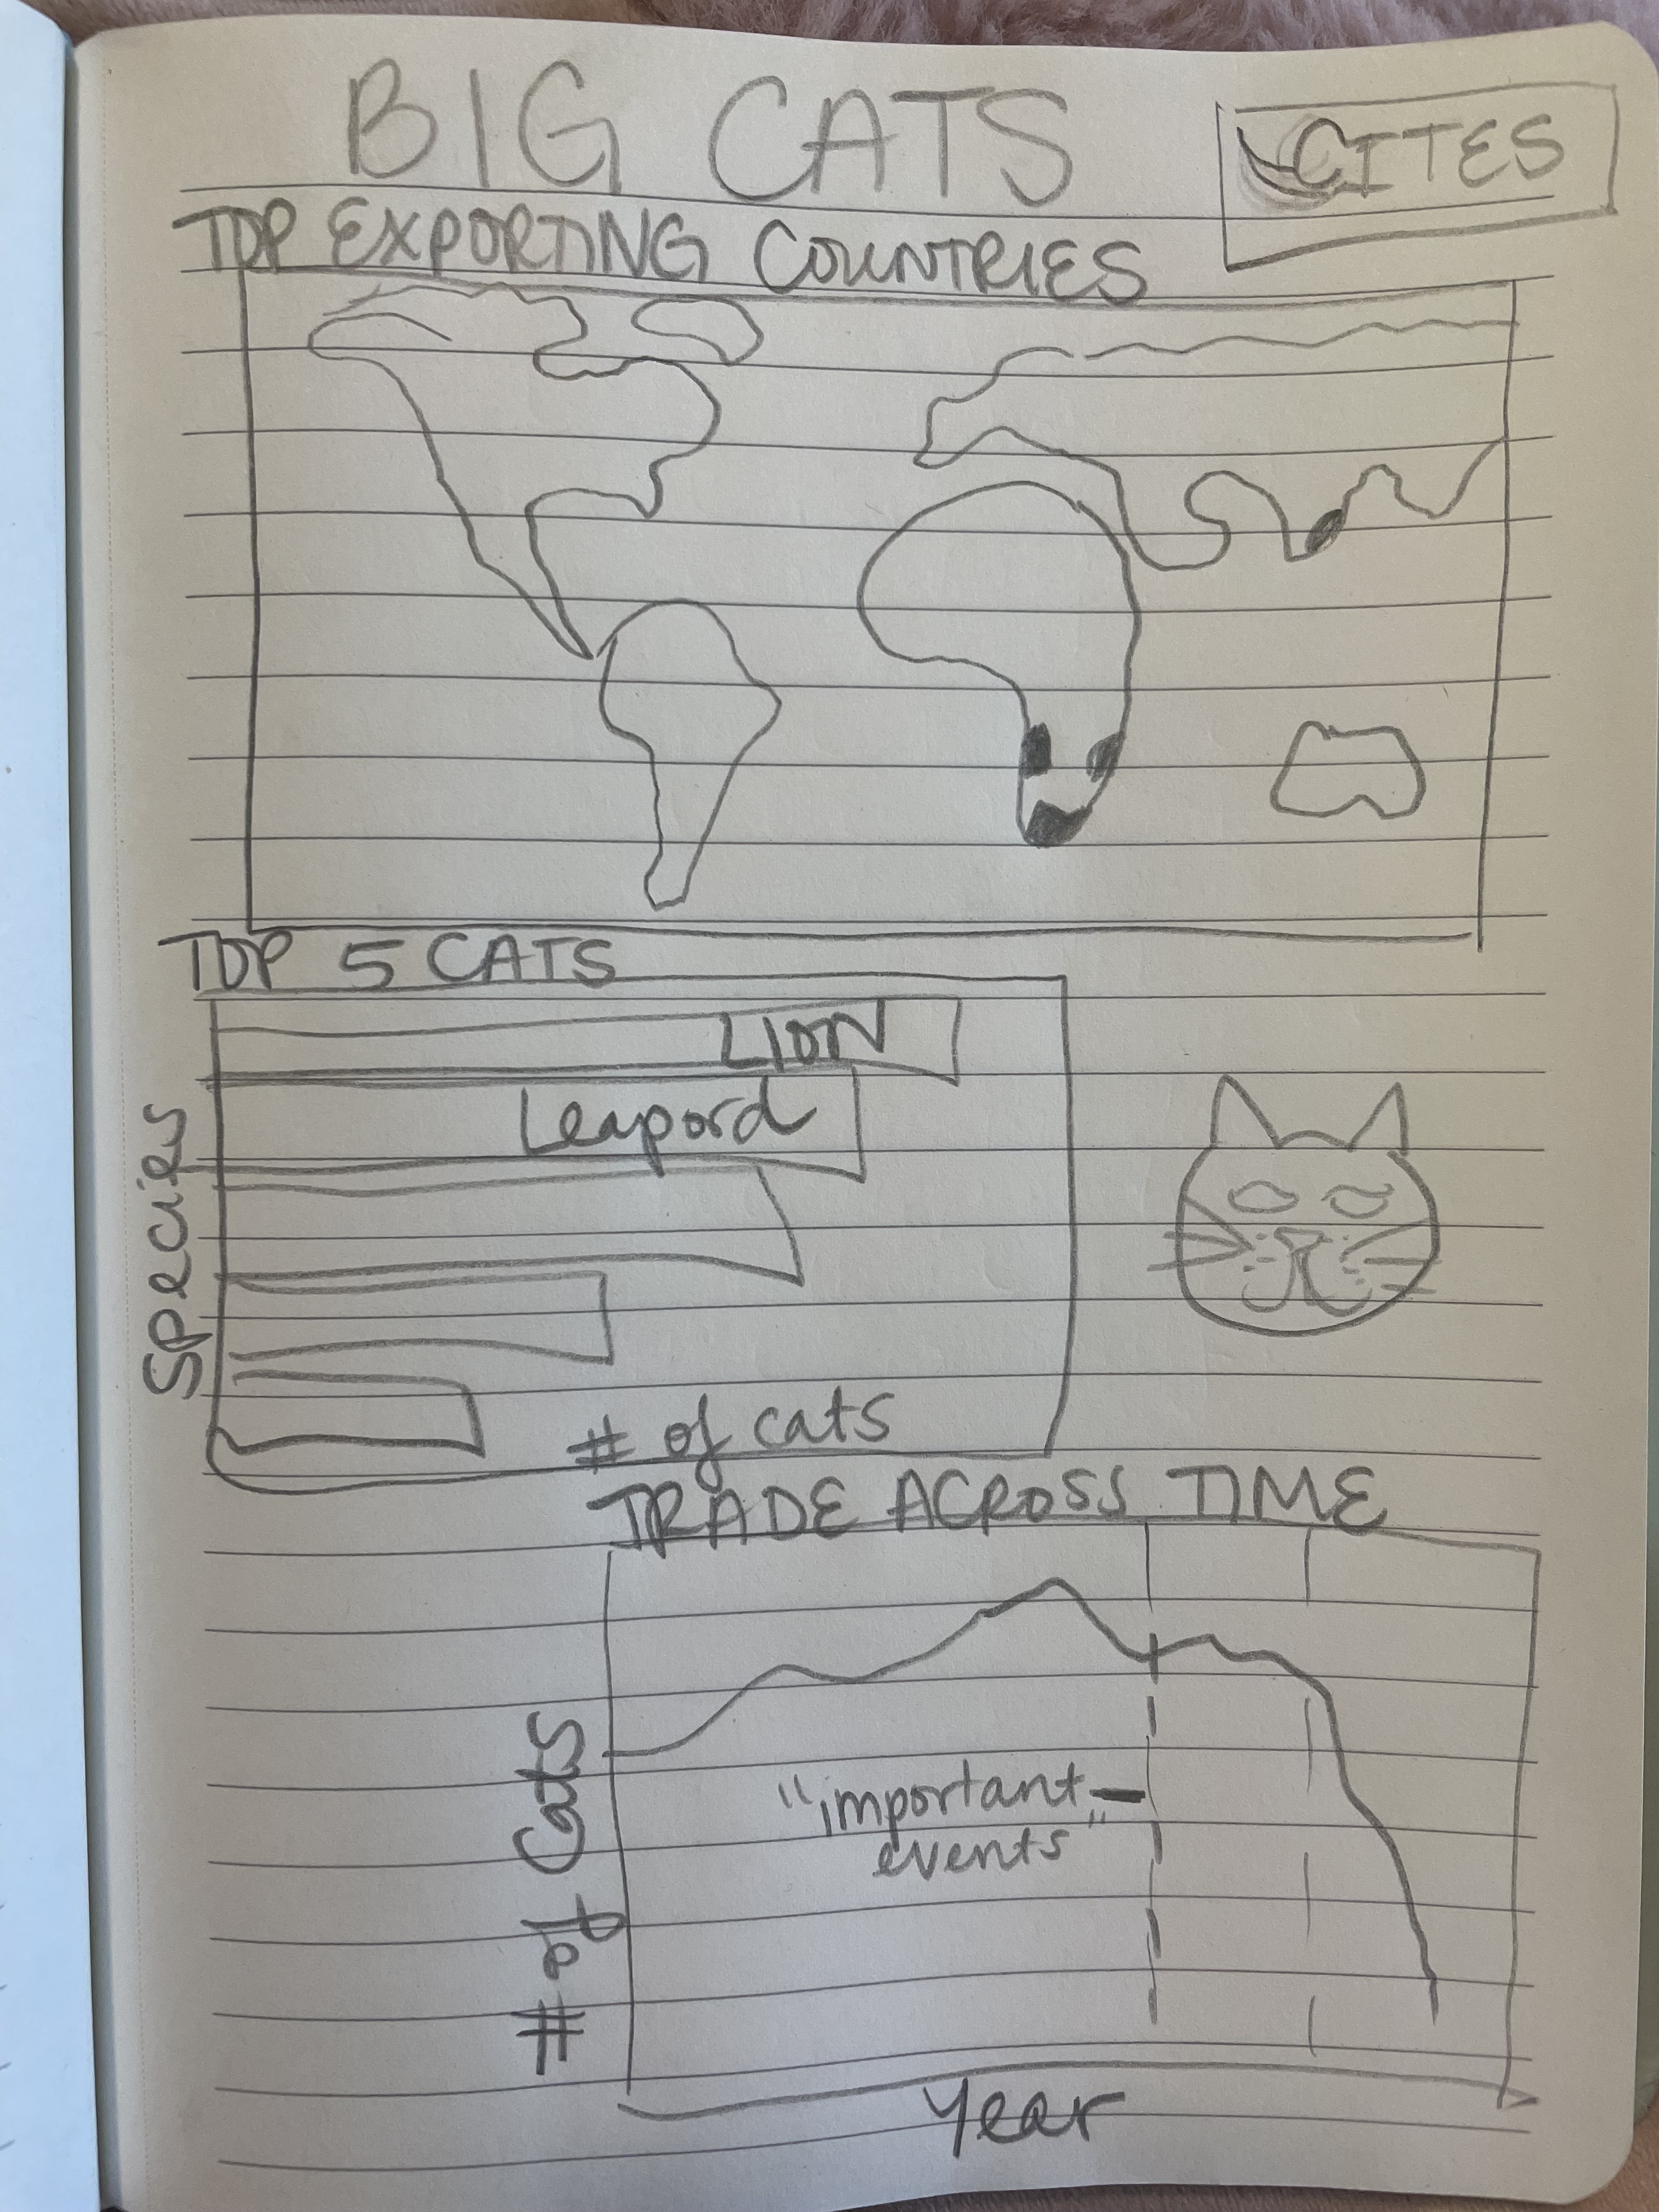 BIG CATS
CITES
TOP EXPORTING COUNTRIES
TOP 5 CATS
LION
Leapord
Species
# of cats
TRADE ACROSS TIME
"important
events"
# of Cats
Year